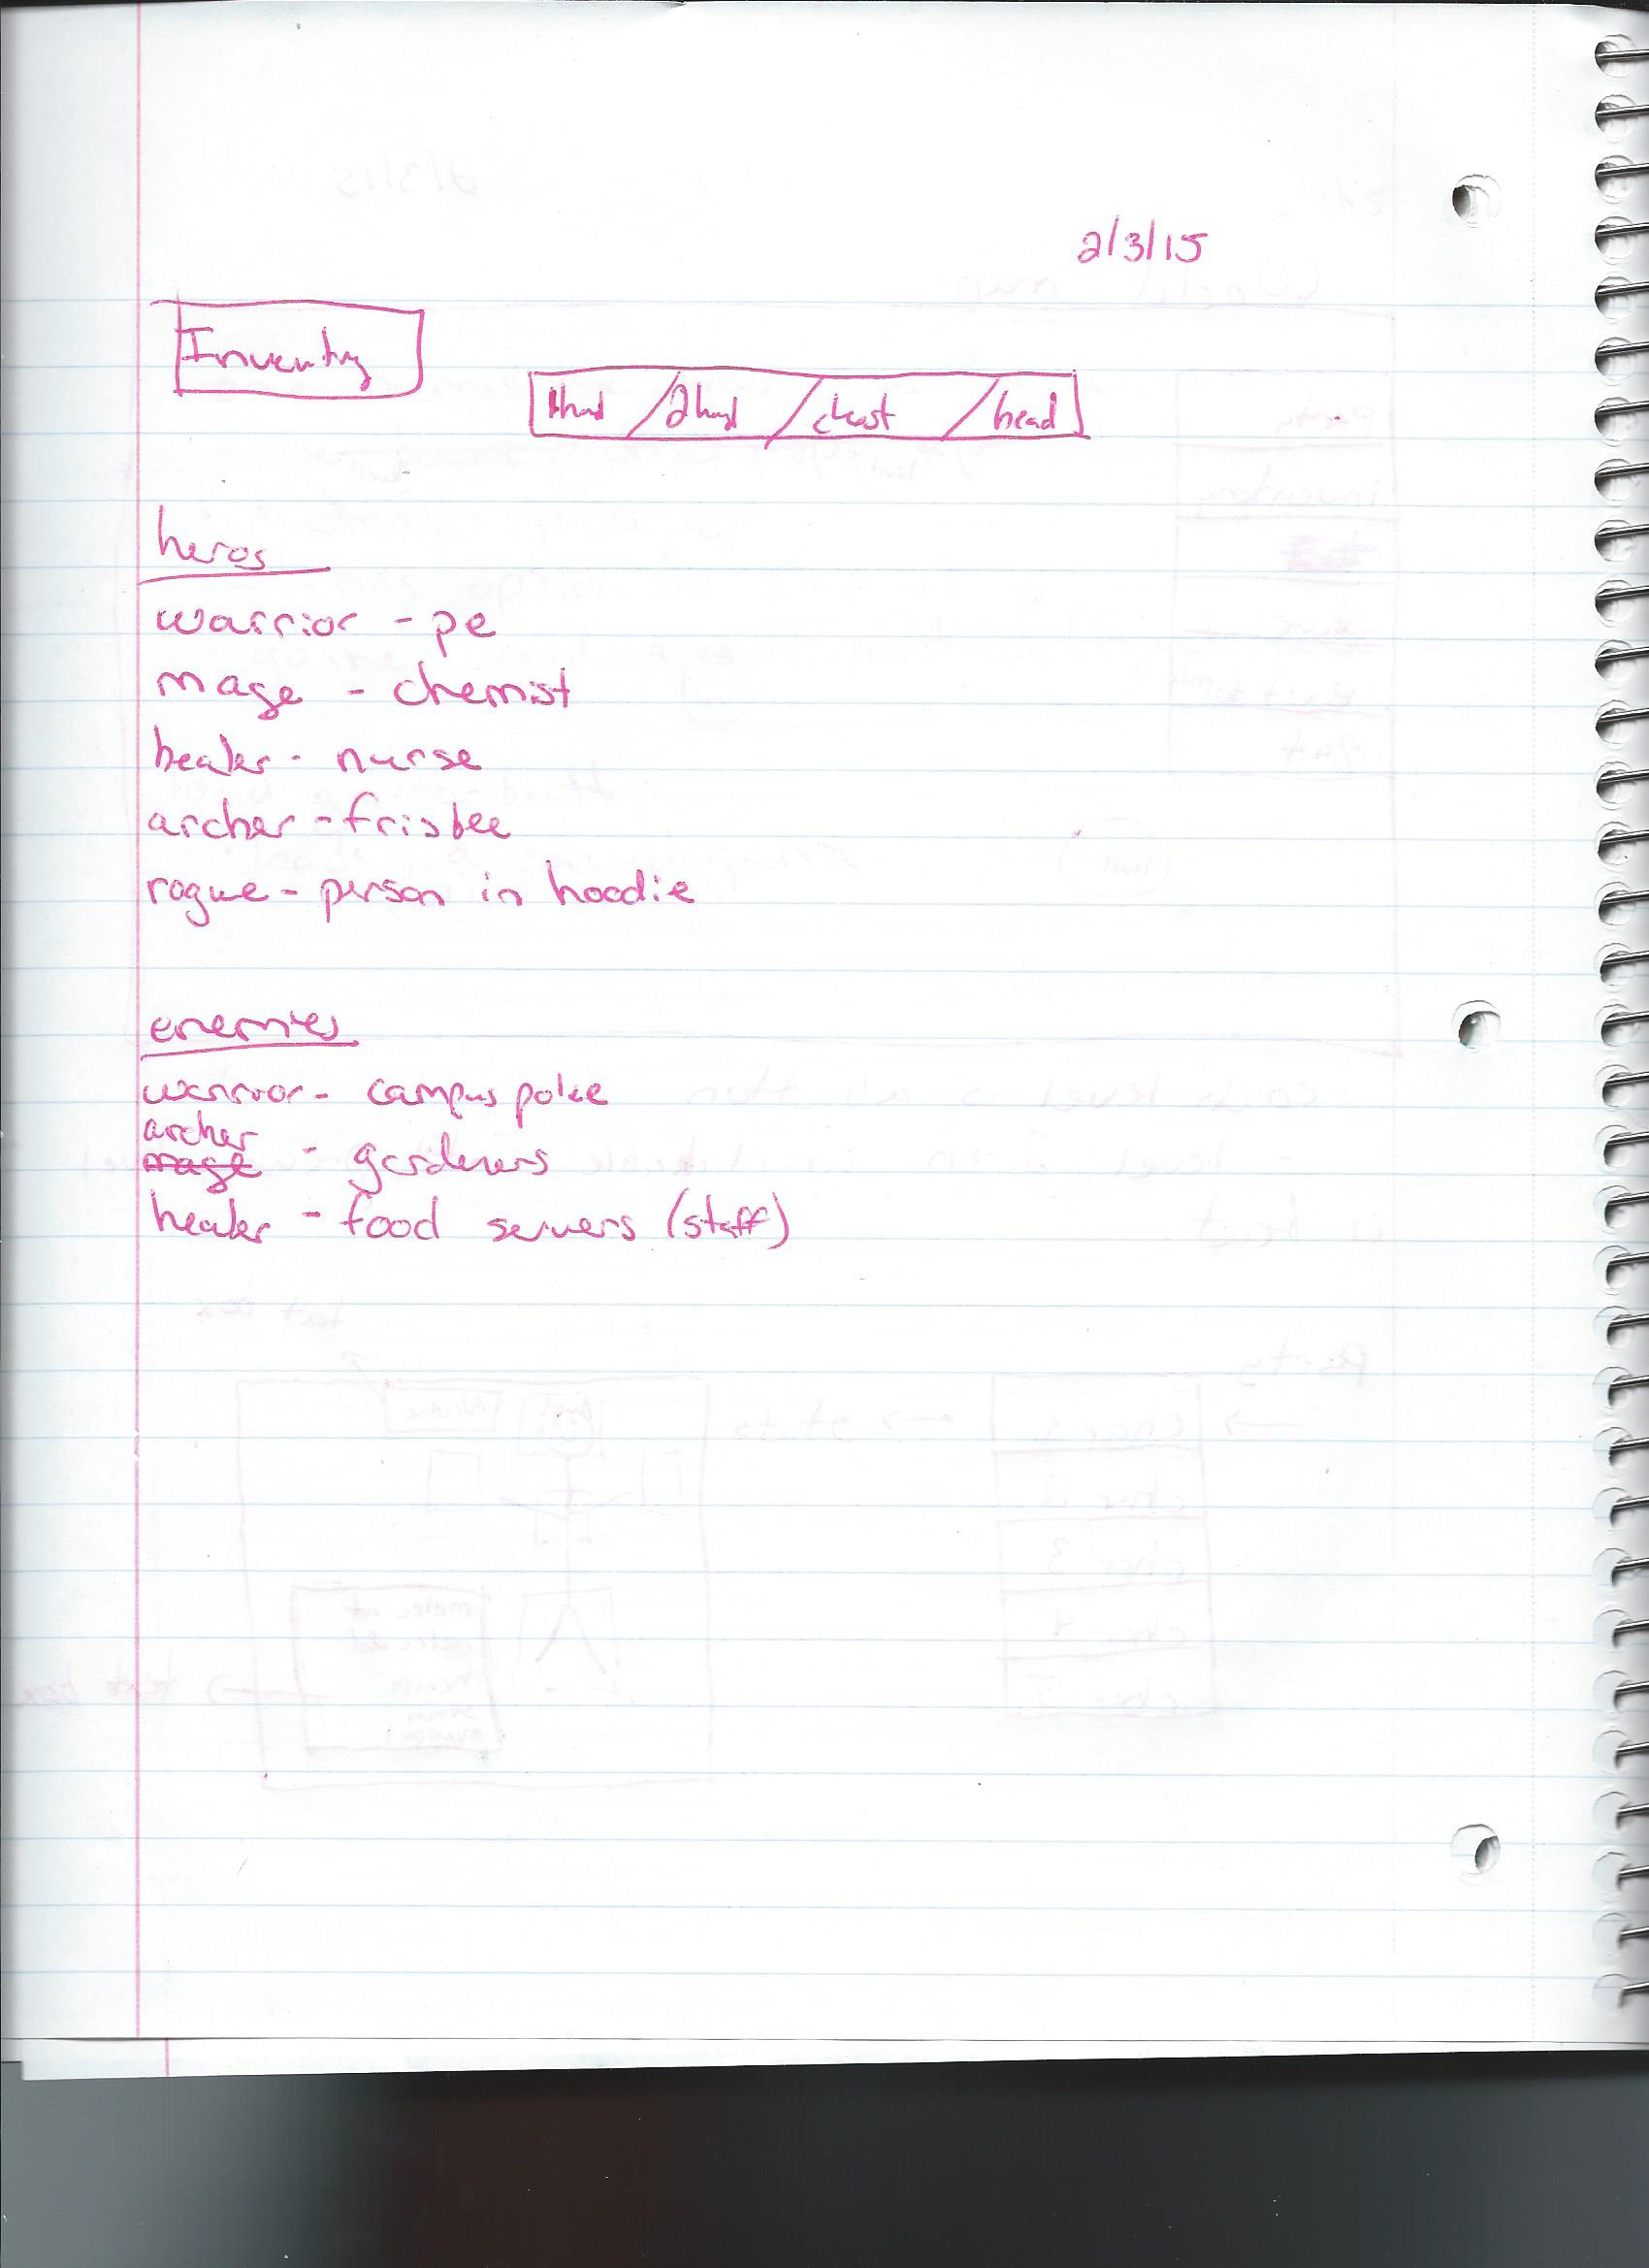 2/3/15
Inventry
1hand / 2hand / chest / head
heros
warrior - pe
mage - chemist
healer - nurse
archer - frisbee
rogue - person in hoodie
enemies
warrior - campus police
archer
mage - gardeners
healer - food servers (staff)